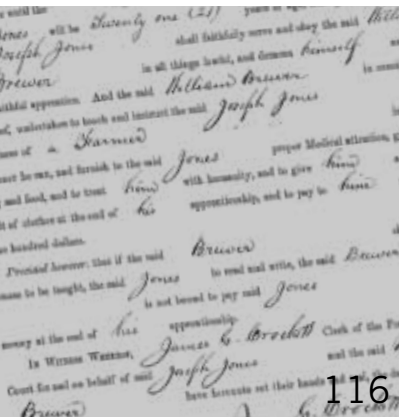 will be Twenty one (21) years
Jones
Joseph Jones shall faithfully serve and obey the said
Brewer in all things lawful, and demean himself
apprentice. And the said William Brewer
undertakes to teach and instruct the said Joseph Jones
of a Farmer
he can, and furnish to the said Jones proper Medical attention,
and food, and to treat him with humanity, and to give him
of clothes at the end of his apprenticeship, and to pay to him
hundred dollars.
Provided however: that if the said Brewer
to be taught, the said Jones to read and write, the said Brewer
is not bound to pay said Jones
money at the end of his apprenticeship.
In Witness Whereof, James G. Brockett Clerk of the
Court for and on behalf of said Joseph Jones and the said
Brewer have hereunto set their hands
116